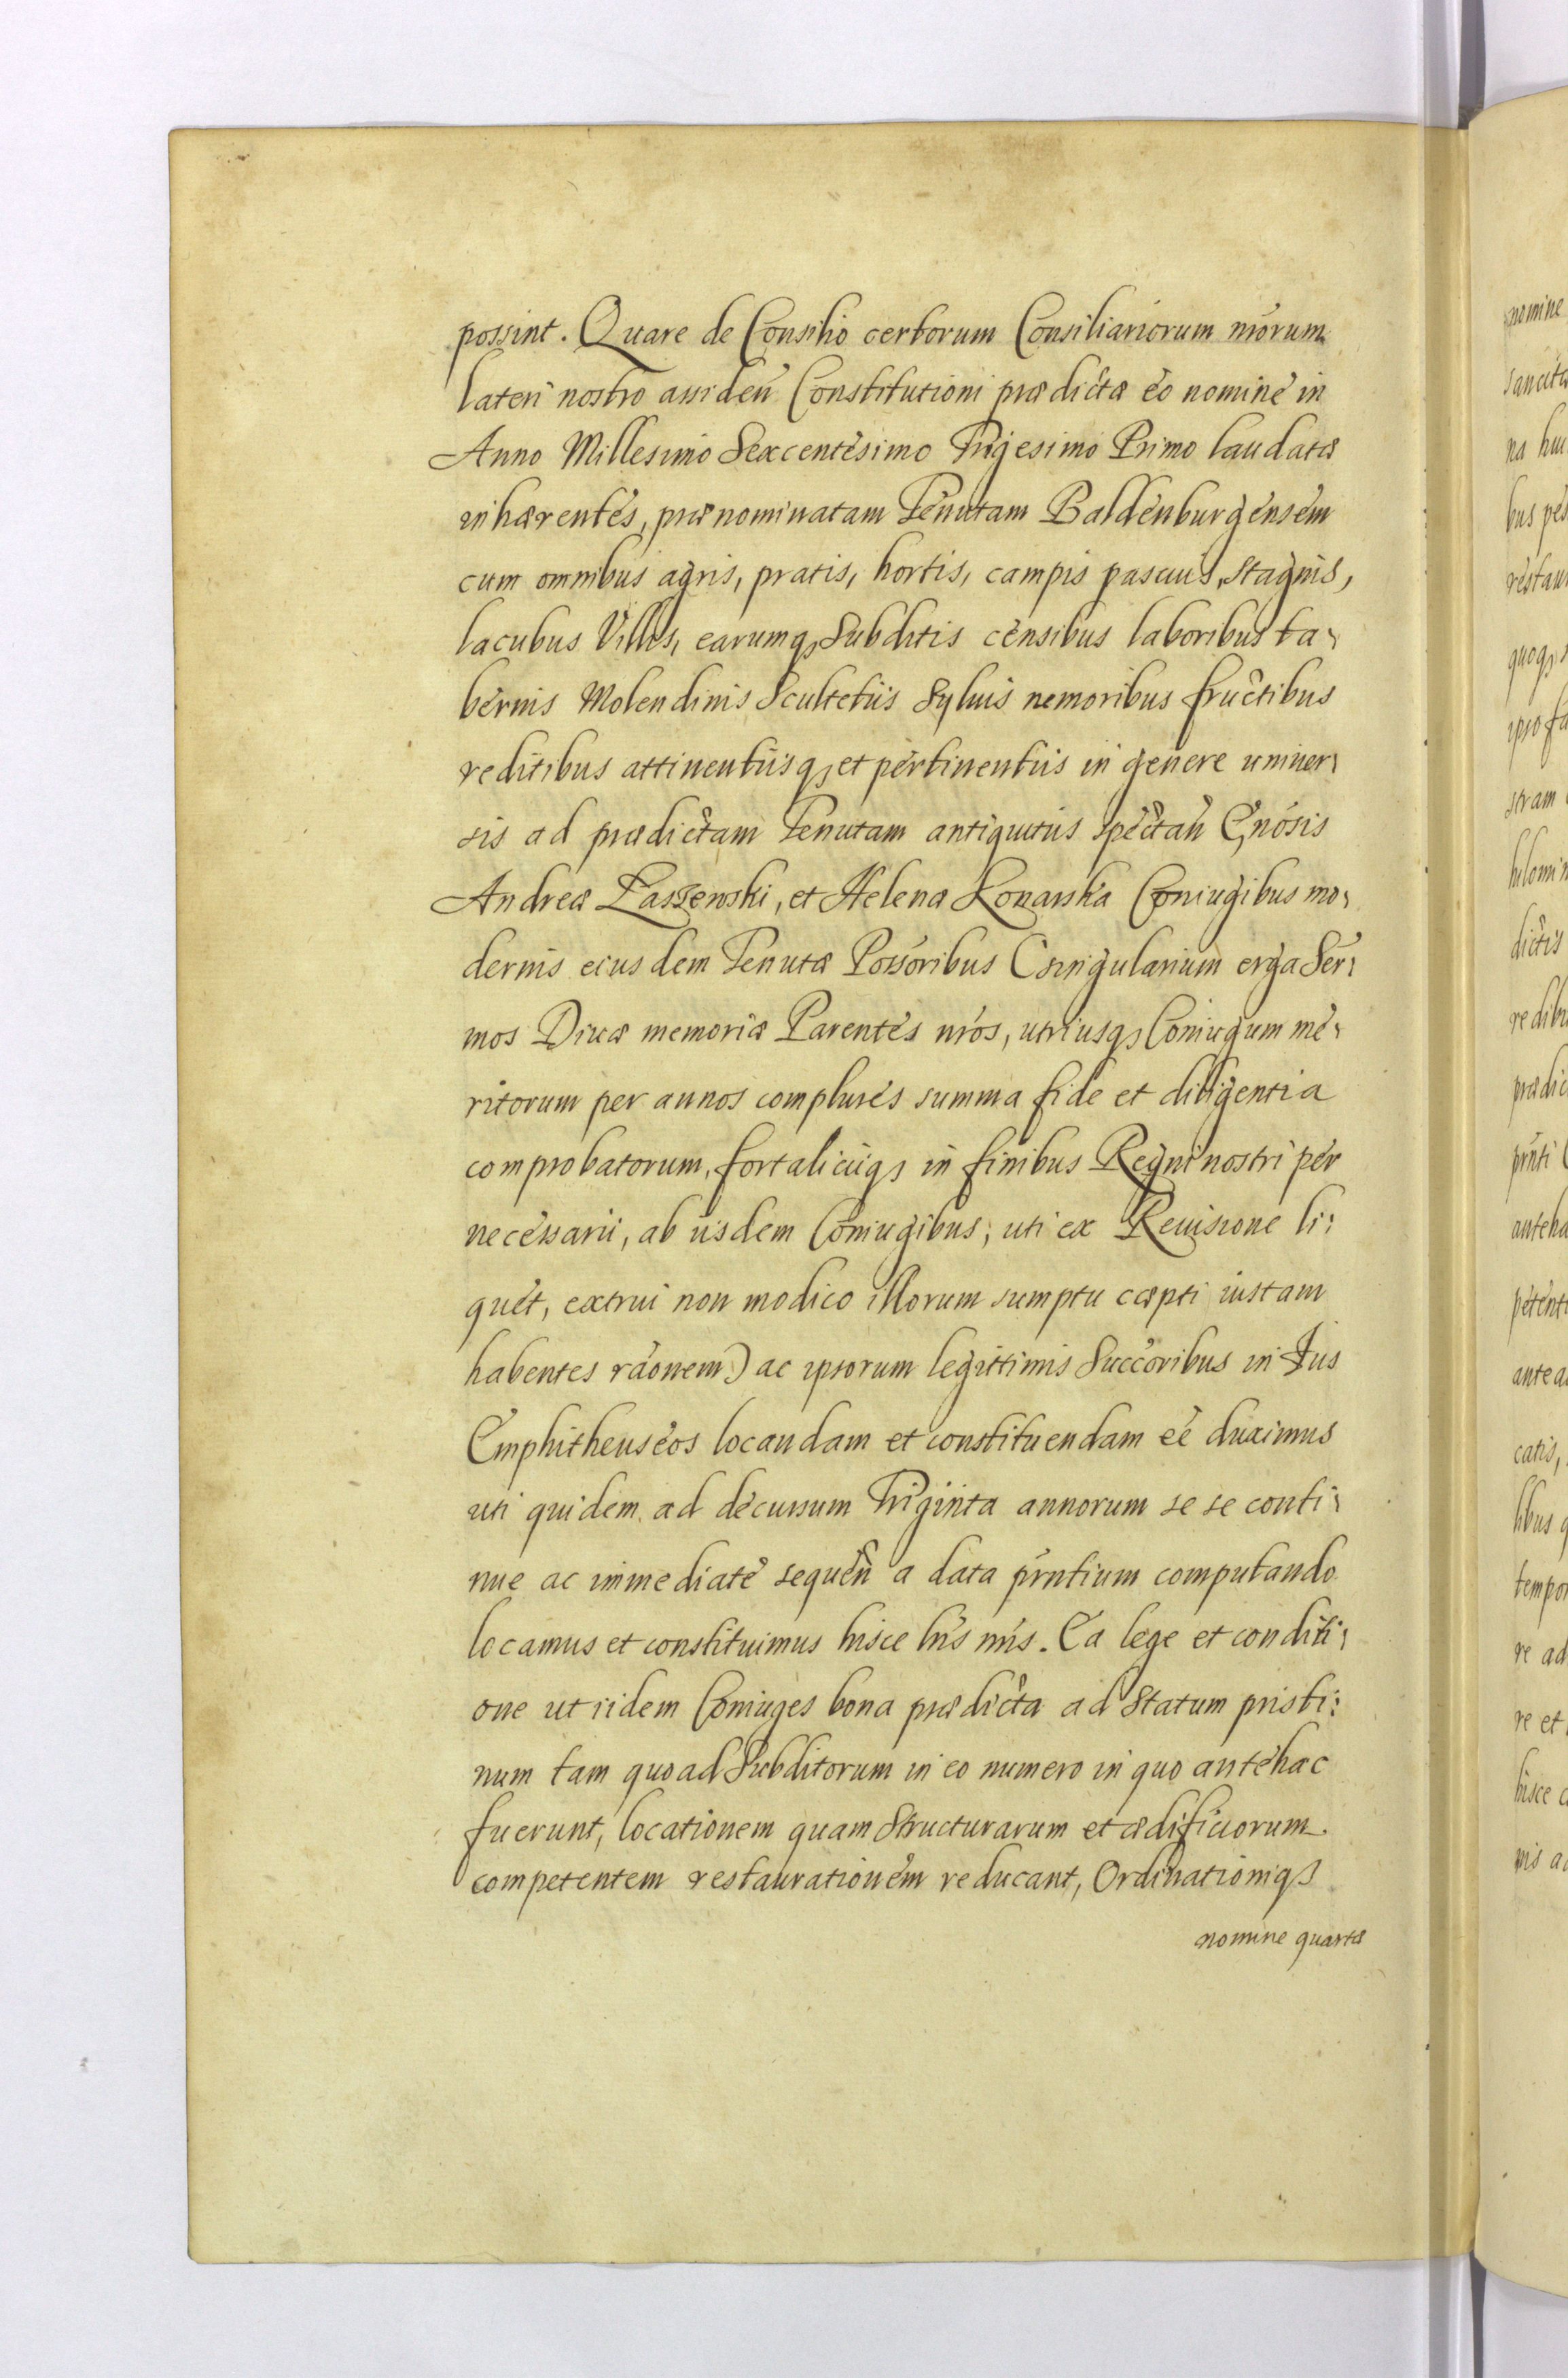 possint. Quare de Consilio certorum Consiliariorum nrórum
lateri nostro assideñ Constitutioni prædictæ eo nomine in
Anno Millesimo Sexcentesimo Trigesimo Primo laudatæ
inhærentes, prænominatam Tenutam Baldenburgensem
cum omnibus agris, pratis, hortis, campis pascuis, stagnis,
lacubus Villis, earumq, Subditis censibus laboribus ta-
bernis Molendinis Scultetijs Syluis nemoribus fructibus
reditibus attinentiisq, et pertinentiis in genere uniuer-
sis ad prædictam Tenutam antiquitus spectañ Gnósis
Andreæ Laszewski, et Helenæ Konarska Coniugibus mo-
dernis eiusdem Tenutæ Possóribus (singularium erga Ser-
mos Diuæ memoriæ Parentes nrós, utriusq, Coniugum me-
ritorum per annos complures summa fide et diligentia
comprobatorum, fortaliciiq, in finibus Regni nostri per
necessarii, ab iisdem Coniugibus, uti ex Reuisione li-
quet, extrui non modico illorum sumptu cæpti iustam
habentes ráonem) ac ipsorum legittimis Succóribus in Ius
Emphitheuseos locandam et constituendam eé duximus
uti quidem ad decursum Triginta annorum se se conti-
nue ac immediate sequeñ a data prńtium computando
locamus et constituimus hisce lrís nrís. Ea lege et conditi-
one ut iidem Coniuges bona prædicta ad Statum pristi-
num tam quoad Subditorum in eo numero in quo antehac
fuerunt, locationem quam Structurarum et ædificiorum
competentem restaurationem reducant, Ordinationiq,
nomine quartæ
nomine
na hui
stram
dictis
catis,
re ad
re et